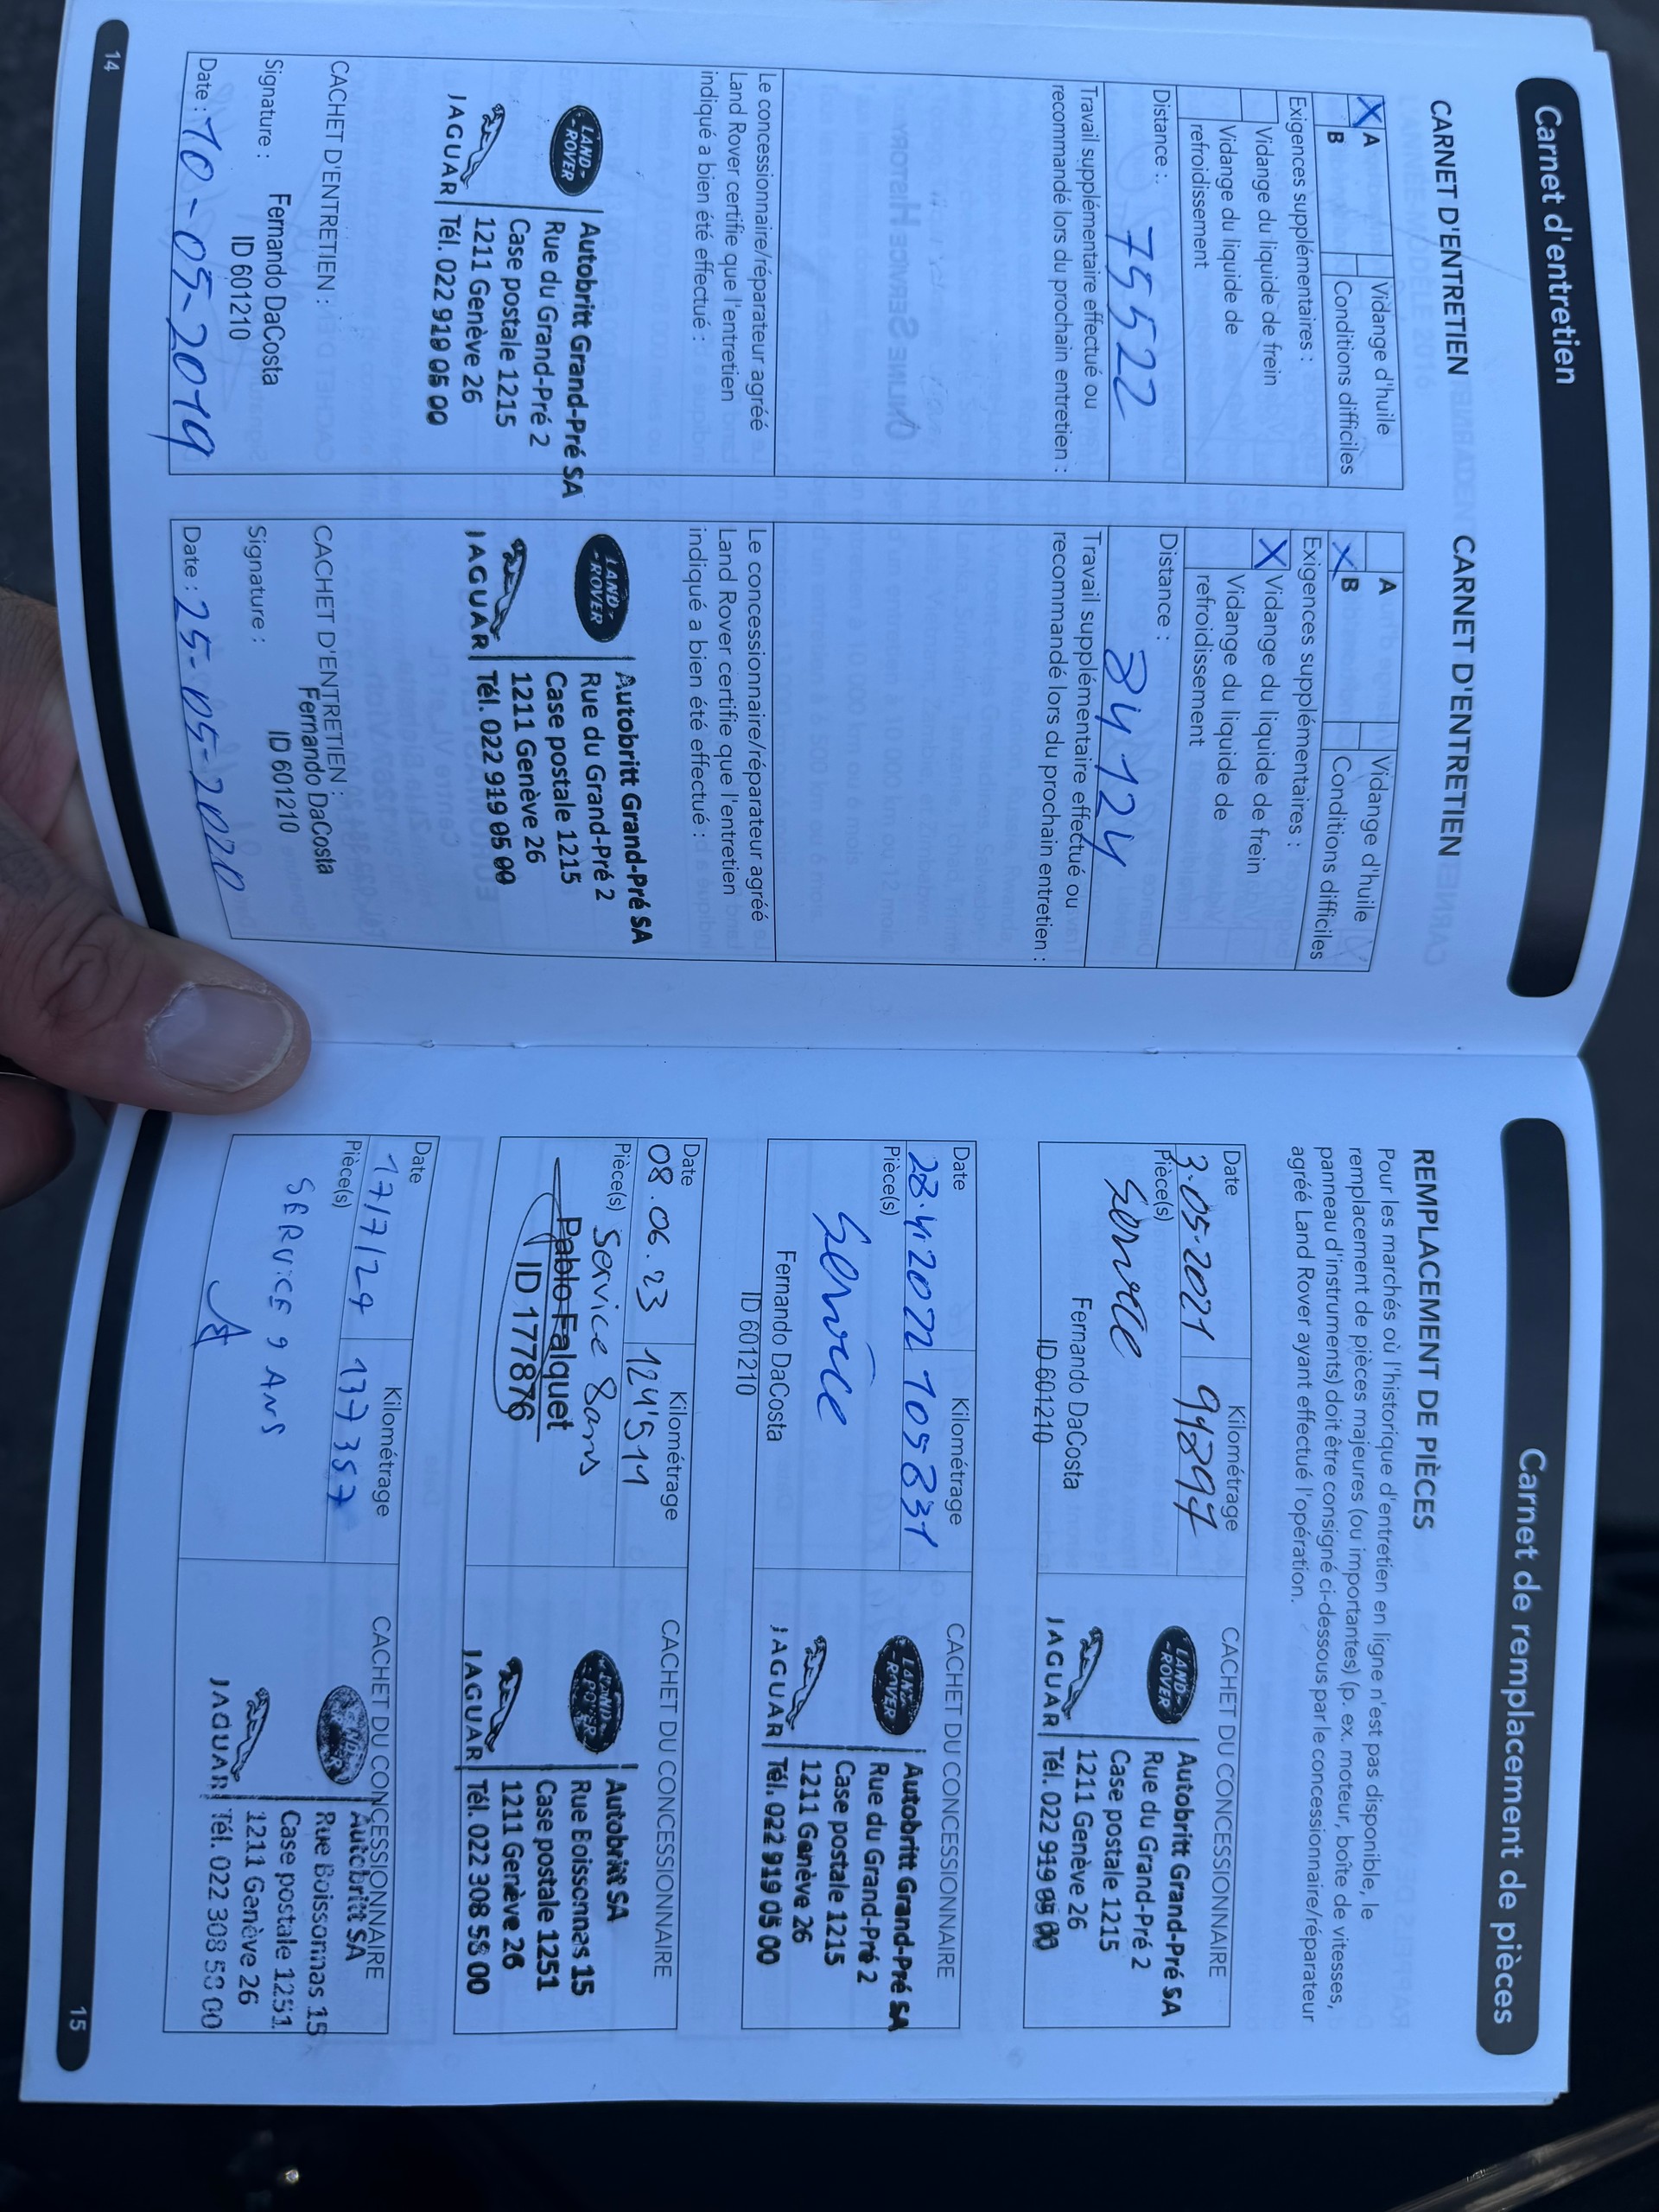 Carnet d'entretien
CARNET D'ENTRETIEN
X A
B
Vidange d'huile
Conditions difficiles
Exigences supplémentaires :
Vidange du liquide de frein
Vidange du liquide de
refroidissement
Distance :
75522
Travail supplémentaire effectué ou
recommandé lors du prochain entretien :
Le concessionnaire/réparateur agréé
Land Rover certifie que l'entretien
indiqué a bien été effectué :
LAND-
-ROVER
JAGUAR
Autobritt Grand-Pré SA
Rue du Grand-Pré 2
Case postale 1215
1211 Genève 26
Tél. 022 919 05 00
CACHET D'ENTRETIEN :
Signature :
Fernando DaCosta
ID 601210
Date : 10-05-2019
14
CARNET D'ENTRETIEN
A
X B
Vidange d'huile
Conditions difficiles
Exigences supplémentaires :
X Vidange du liquide de frein
Vidange du liquide de
refroidissement
Distance :
84124
Travail supplémentaire effectué ou
recommandé lors du prochain entretien :
Le concessionnaire/réparateur agréé
Land Rover certifie que l'entretien
indiqué a bien été effectué :
LAND-
-ROVER
JAGUAR
Autobritt Grand-Pré SA
Rue du Grand-Pré 2
Case postale 1215
1211 Genève 26
Tél. 022 919 05 00
CACHET D'ENTRETIEN :
Fernando DaCosta
ID 601210
Signature :
Date : 25-05-2020
Carnet de remplacement de pièces
REMPLACEMENT DE PIÈCES
Pour les marchés où l'historique d'entretien en ligne n'est pas disponible, le
remplacement de pièces majeures (ou importantes) (p. ex. moteur, boîte de vitesses,
panneau d'instruments) doit être consigné ci-dessous par le concessionnaire/réparateur
agréé Land Rover ayant effectué l'opération.
Date
Kilométrage
CACHET DU CONCESSIONNAIRE
3.05.2021
94897
Pièce(s)
Service
Fernando DaCosta
ID 601210
LAND-
-ROVER
JAGUAR
Autobritt Grand-Pré SA
Rue du Grand-Pré 2
Case postale 1215
1211 Genève 26
Tél. 022 919 05 00
Date
Kilométrage
CACHET DU CONCESSIONNAIRE
28.4.2022
109831
Pièce(s)
Service
Fernando DaCosta
ID 601210
LAND-
-ROVER
JAGUAR
Autobritt Grand-Pré SA
Rue du Grand-Pré 2
Case postale 1215
1211 Genève 26
Tél. 022 919 05 00
Date
Kilométrage
CACHET DU CONCESSIONNAIRE
08.06.23
124'511
Pièce(s) Service 8ans
Pablo Falquet
ID 177876
LAND-
-ROVER
JAGUAR
Autobritt SA
Rue Boissonnas 15
Case postale 1251
1211 Genève 26
Tél. 022 308 53 00
Date
Kilométrage
CACHET DU CONCESSIONNAIRE
17/7/24
137357
Pièce(s)
SERVICE 9 ANS
JAGUAR
Autobritt SA
Rue Boissonnas 15
Case postale 1251
1211 Genève 26
Tél. 022 308 53 00
15